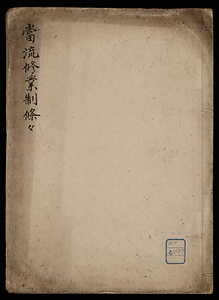 當流修業制條々